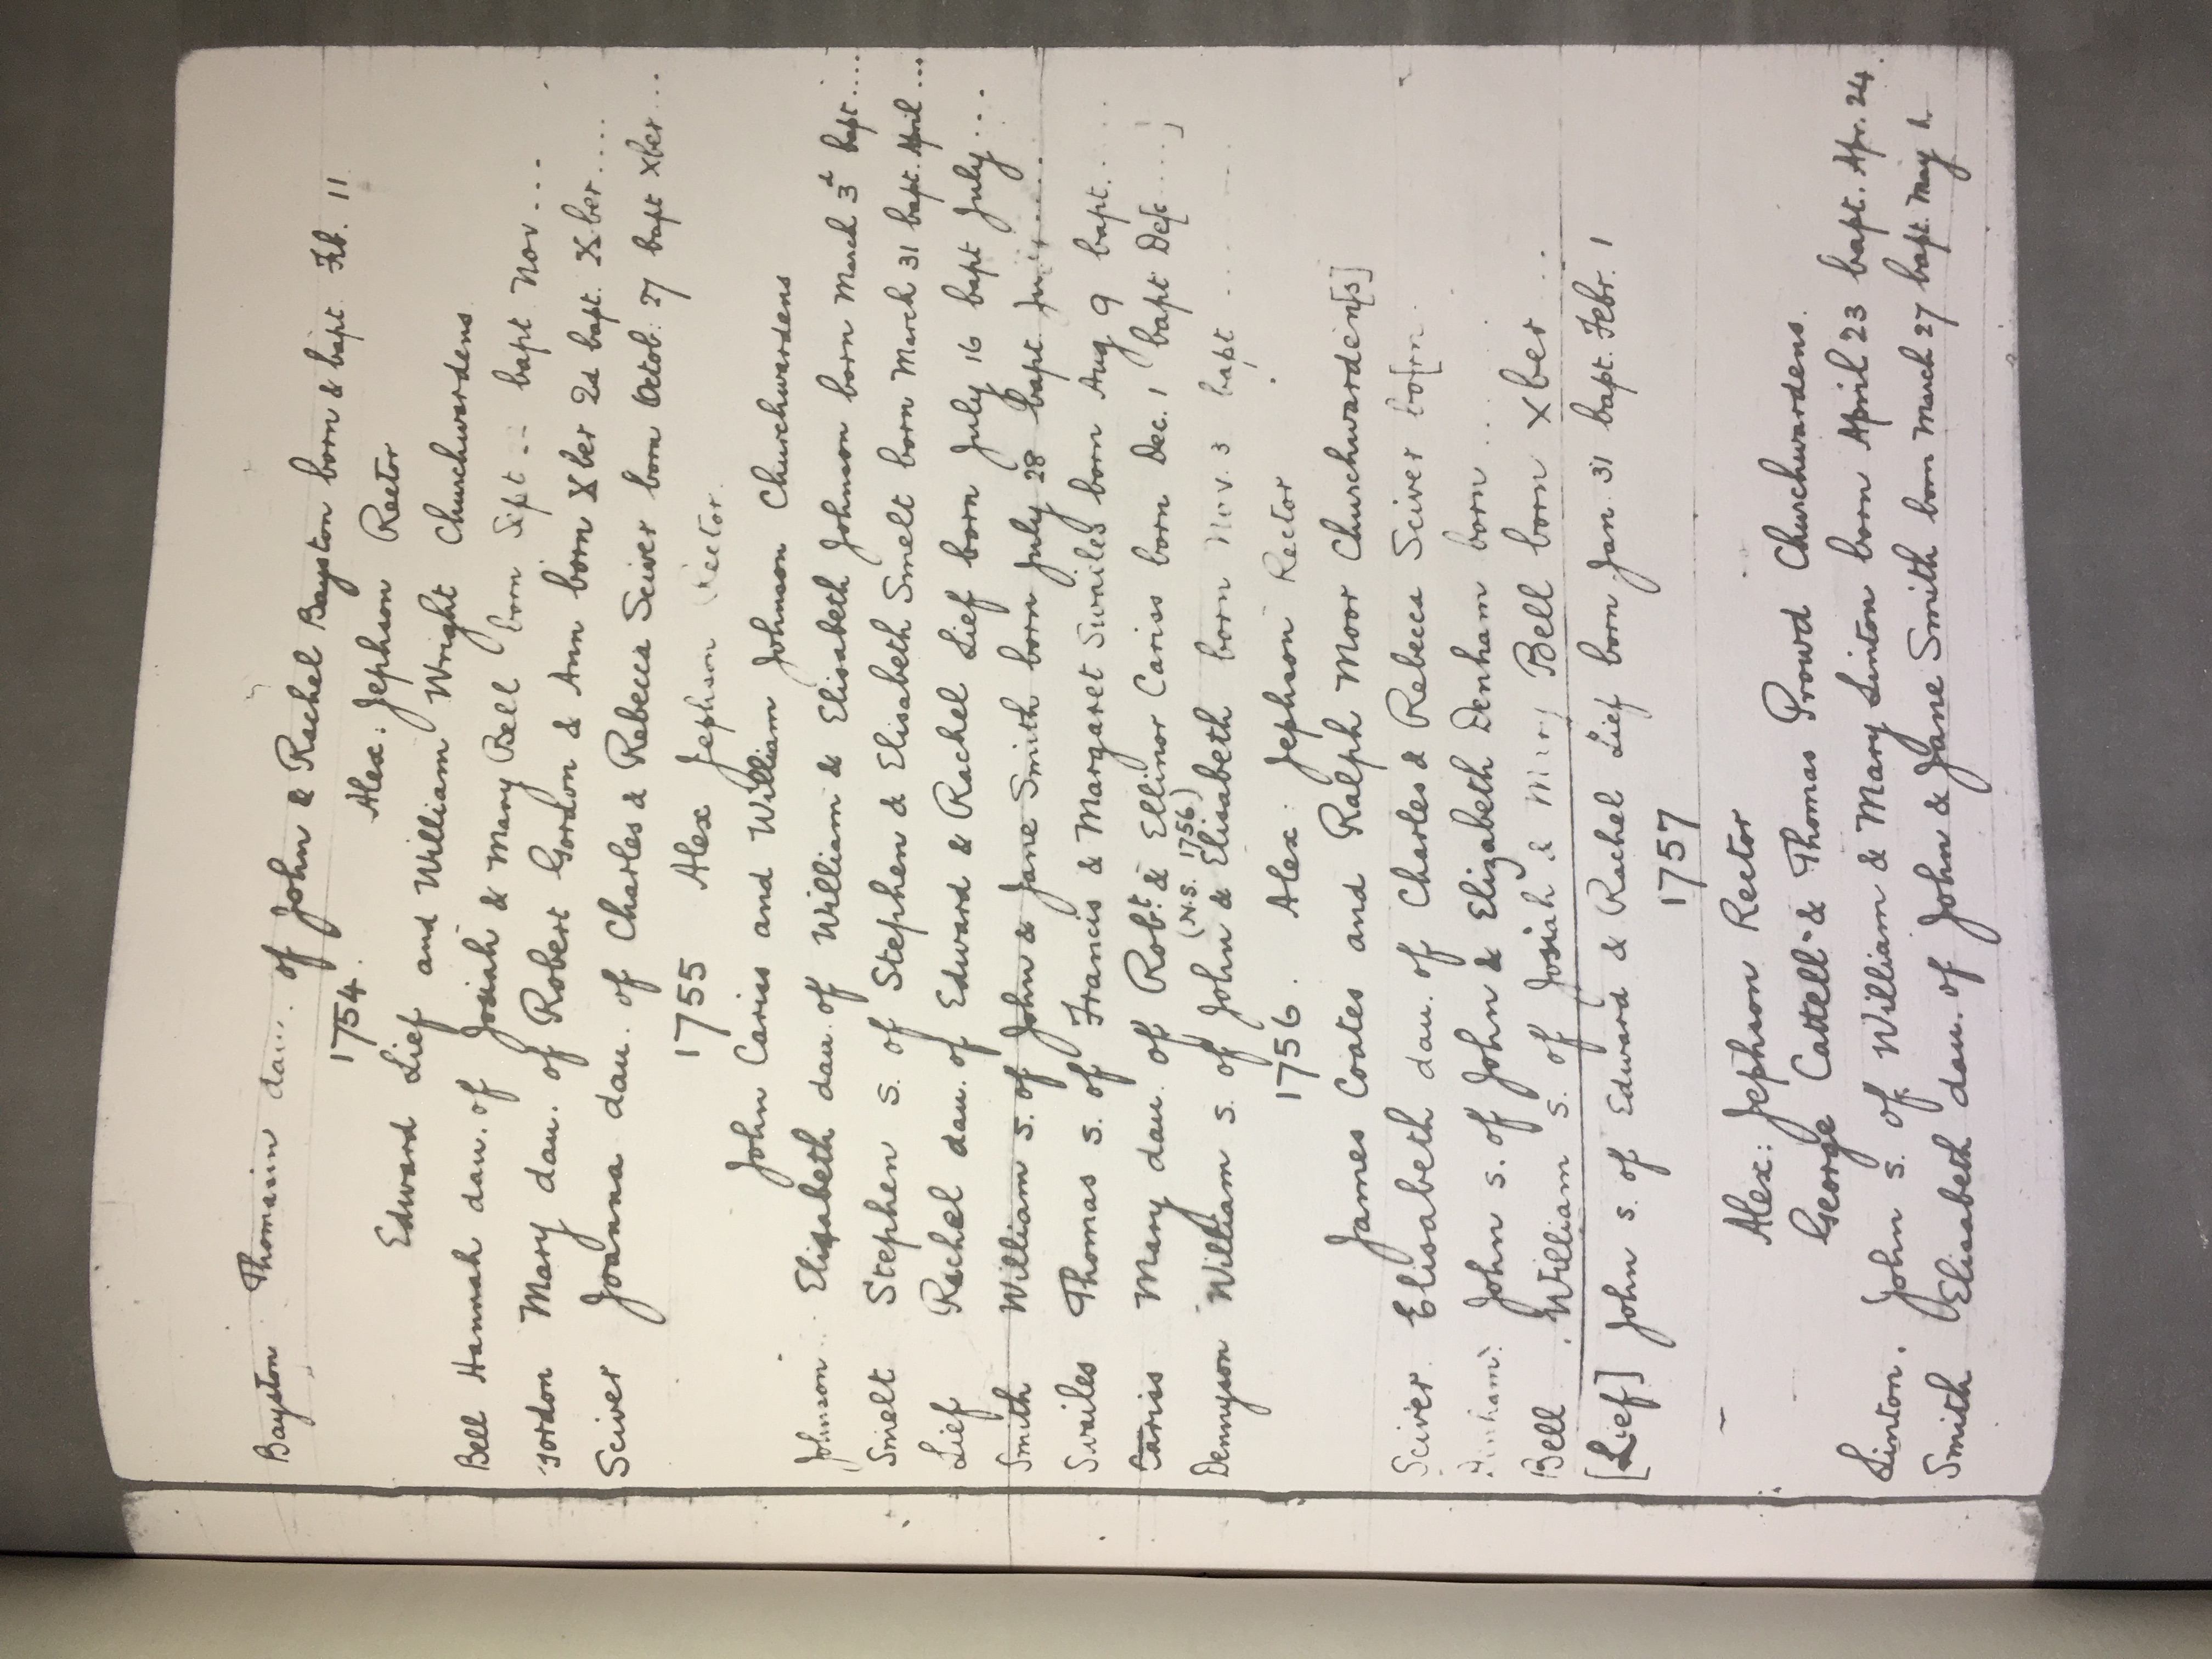 Bayston Thomasin dau. of John & Rachel Bayston born & bapt. Feb. 11
1754. Alex: Jephson Rector
Edward Lief and William Wright Churchwardens
Bell Hannah dau. of Josiah & Mary Bell born Sept -- bapt Nov ...
Gordon Mary dau. of Robert Gordon & Ann born Xber 2d bapt. Xber....
Sciver Joanna dau. of Charles & Rebecca Sciver born Octob. 27 bapt Xber...
1755 Alex Jephson Rector.
John Cariss and William Johnson Churchwardens
Johnson Elisabeth dau. of William & Elisabeth Johnson born March 3d bapt....
Smelt Stephen s. of Stephen & Elisabeth Smelt born March 31 bapt. April ...
Lief Rachel dau. of Edward & Rachel Lief born July 16 bapt July ...
Smith William s. of John & Jane Smith born July 28 bapt.
Swailes Thomas s. of Francis & Margaret Swailes born Aug 9 bapt. ....
Cariss Mary dau. of Robt. & Ellinor Cariss born Dec. 1 bapt De[c ....]
(N.S. 1756)
Dennyson William s. of John & Elisabeth born Nov. 3 bapt ....
1756. Alex: Jephson Rector
James Coates and Ralph Moor Churchwarden[s]
Sciver Elisabeth dau. of Charles & Rebecca Sciver bo[rn
Denham John s. of John & Elizabeth Denham born ...
Bell William s. of Josiah & Mary Bell born Xber ...
[Lief] John s. of Edward & Rachel Lief born Jan. 31 bapt. Febr. 1
1757
Alex: Jephson Rector
George Cattell & Thomas Prowd Churchwardens.
Linton. John s. of William & Mary Linton born April 23 bapt. Apr. 24.
Smith Elisabeth dau. of John & Jane Smith born March 27 bapt. May